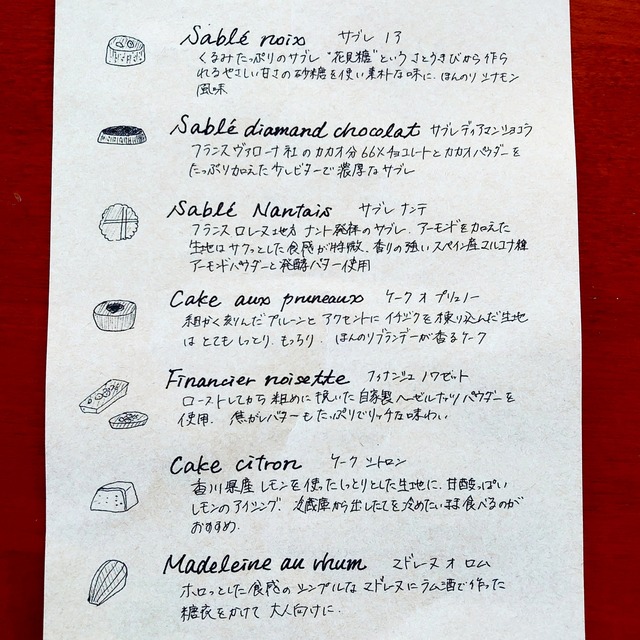 Sablé noix サブレ ノア
くるみたっぷりのサブレ "花見糖"という さとうきびから作ら
れるやさしい甘さの砂糖を使い素朴な味に. ほんのり シナモン
風味
Sablé diamand chocolat サブレディアマンショコラ
フランス ヴァローナ社 の カカオ分 66%チョコレートとカカオパウダーを
たっぷり加えた 少しビターで濃厚なサブレ
Sablé Nantais サブレ ナンテ
フランス ロレーヌ地方 ナント発祥のサブレ. アーモンドを加えた
生地は サクッとした食感が特徴. 香りの強い スペイン産マルコナ種
アーモンドパウダーと発酵バター使用
Cake aux pruneaux ケーク オ プリュノー
細かく刻んだプルーンと アクセントに イチジクを練り込んだ生地
は とてもしっとり. もっちり. ほんのりブランデーが香るケーク
Financier noisette フィナンシェ ノワゼット
ローストしてから 粗めに挽いた自家製ヘーゼルナッツパウダーを
使用. 焦がしバターもたっぷりでリッチな味わい
Cake citron ケーク シトロン
香川県産 レモンを使ったしっとりとした生地に. 甘酸っぱい
レモンのアイシング. 冷蔵庫から出したてを冷めたいまま食べるのが
おすすめ.
Madeleine au rhum マドレーヌ オ ロム
ホロっとした食感の シンプルな マドレーヌにラム酒で作った
糖衣をかけて 大人向けに.